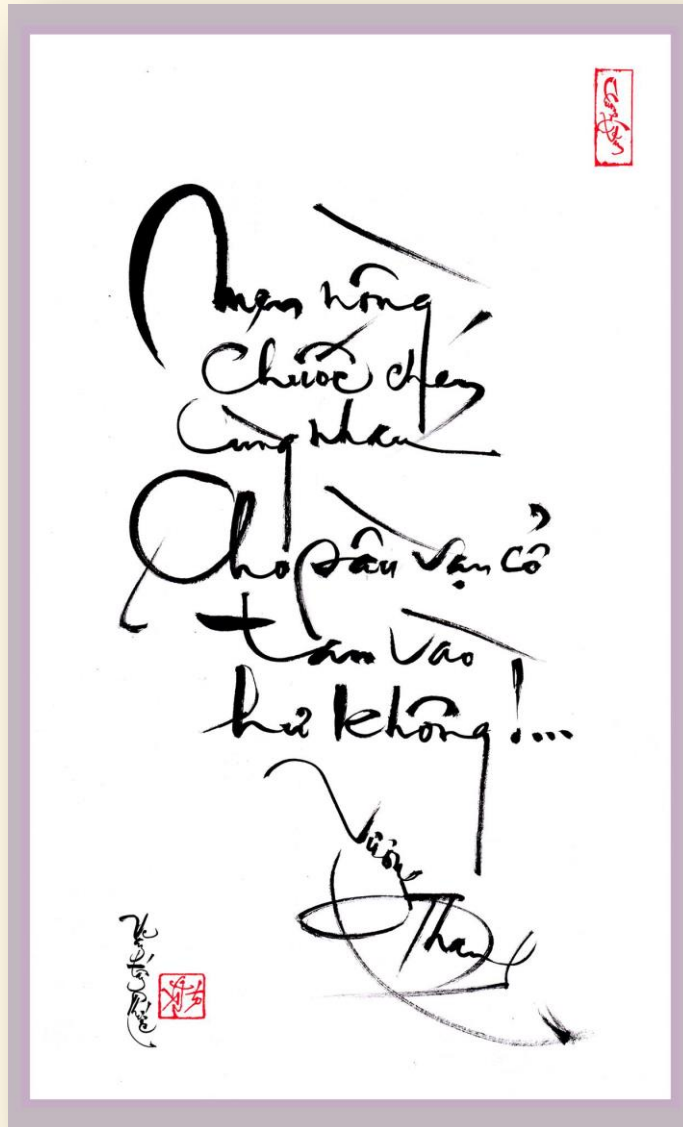 Men nồng
chuốc chén
cùng nhau
Cho sầu vạn cổ
tan vào
hư không!...
Vương
Thanh